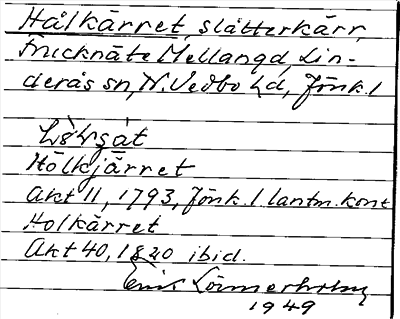 Hålkärret, slåtterkärr,
Fricknäte Mellangd, Lin-
derås sn, N. Vedbo hd, Jönk. l
Hölkjärret
Akt 11, 1793, Jönk. l lantm. kont
Holkärret
Akt 40, 1820 ibid.
1949